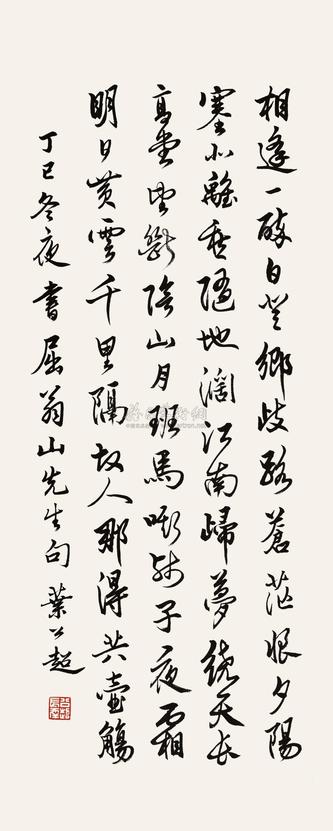 相逢一醉白登鄉歧路蒼茫恨夕陽
塞北離愁隨地濶江南歸夢繞天長
高臺望斷陰山月班馬嘶殘子夜霜
明日黃雲千里隔故人那得共壺觴
丁巳冬夜書屈翁山先生句葉公超